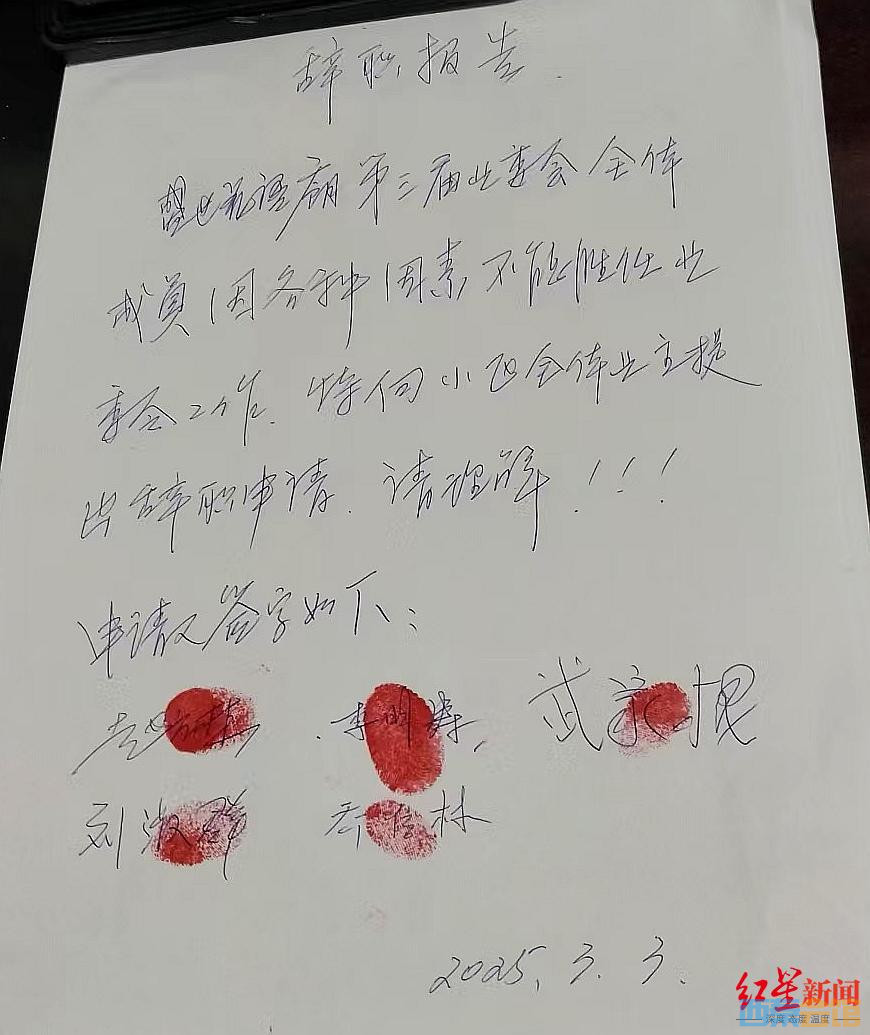 辞职报告.
第三届业委会全体
成员因各种因素不能胜任业
委会工作.特向小区全体业主提
出辞职申请.请理解!!!
申请人签字如下:
李明
武宗
刘淑群 乔 林
2025.3.3.
红星新闻
深度 态度 温度